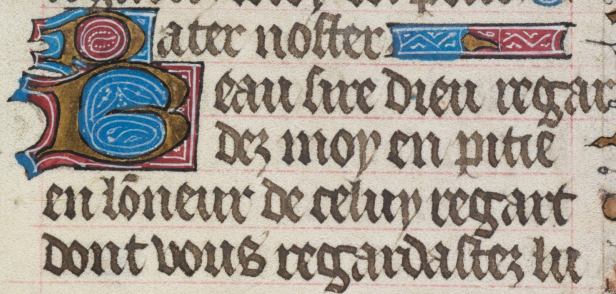 Pater noster
Beau sire dieu regar
dez moy en pitie
en lōneur de celuy regart
dont vous regardastez lu